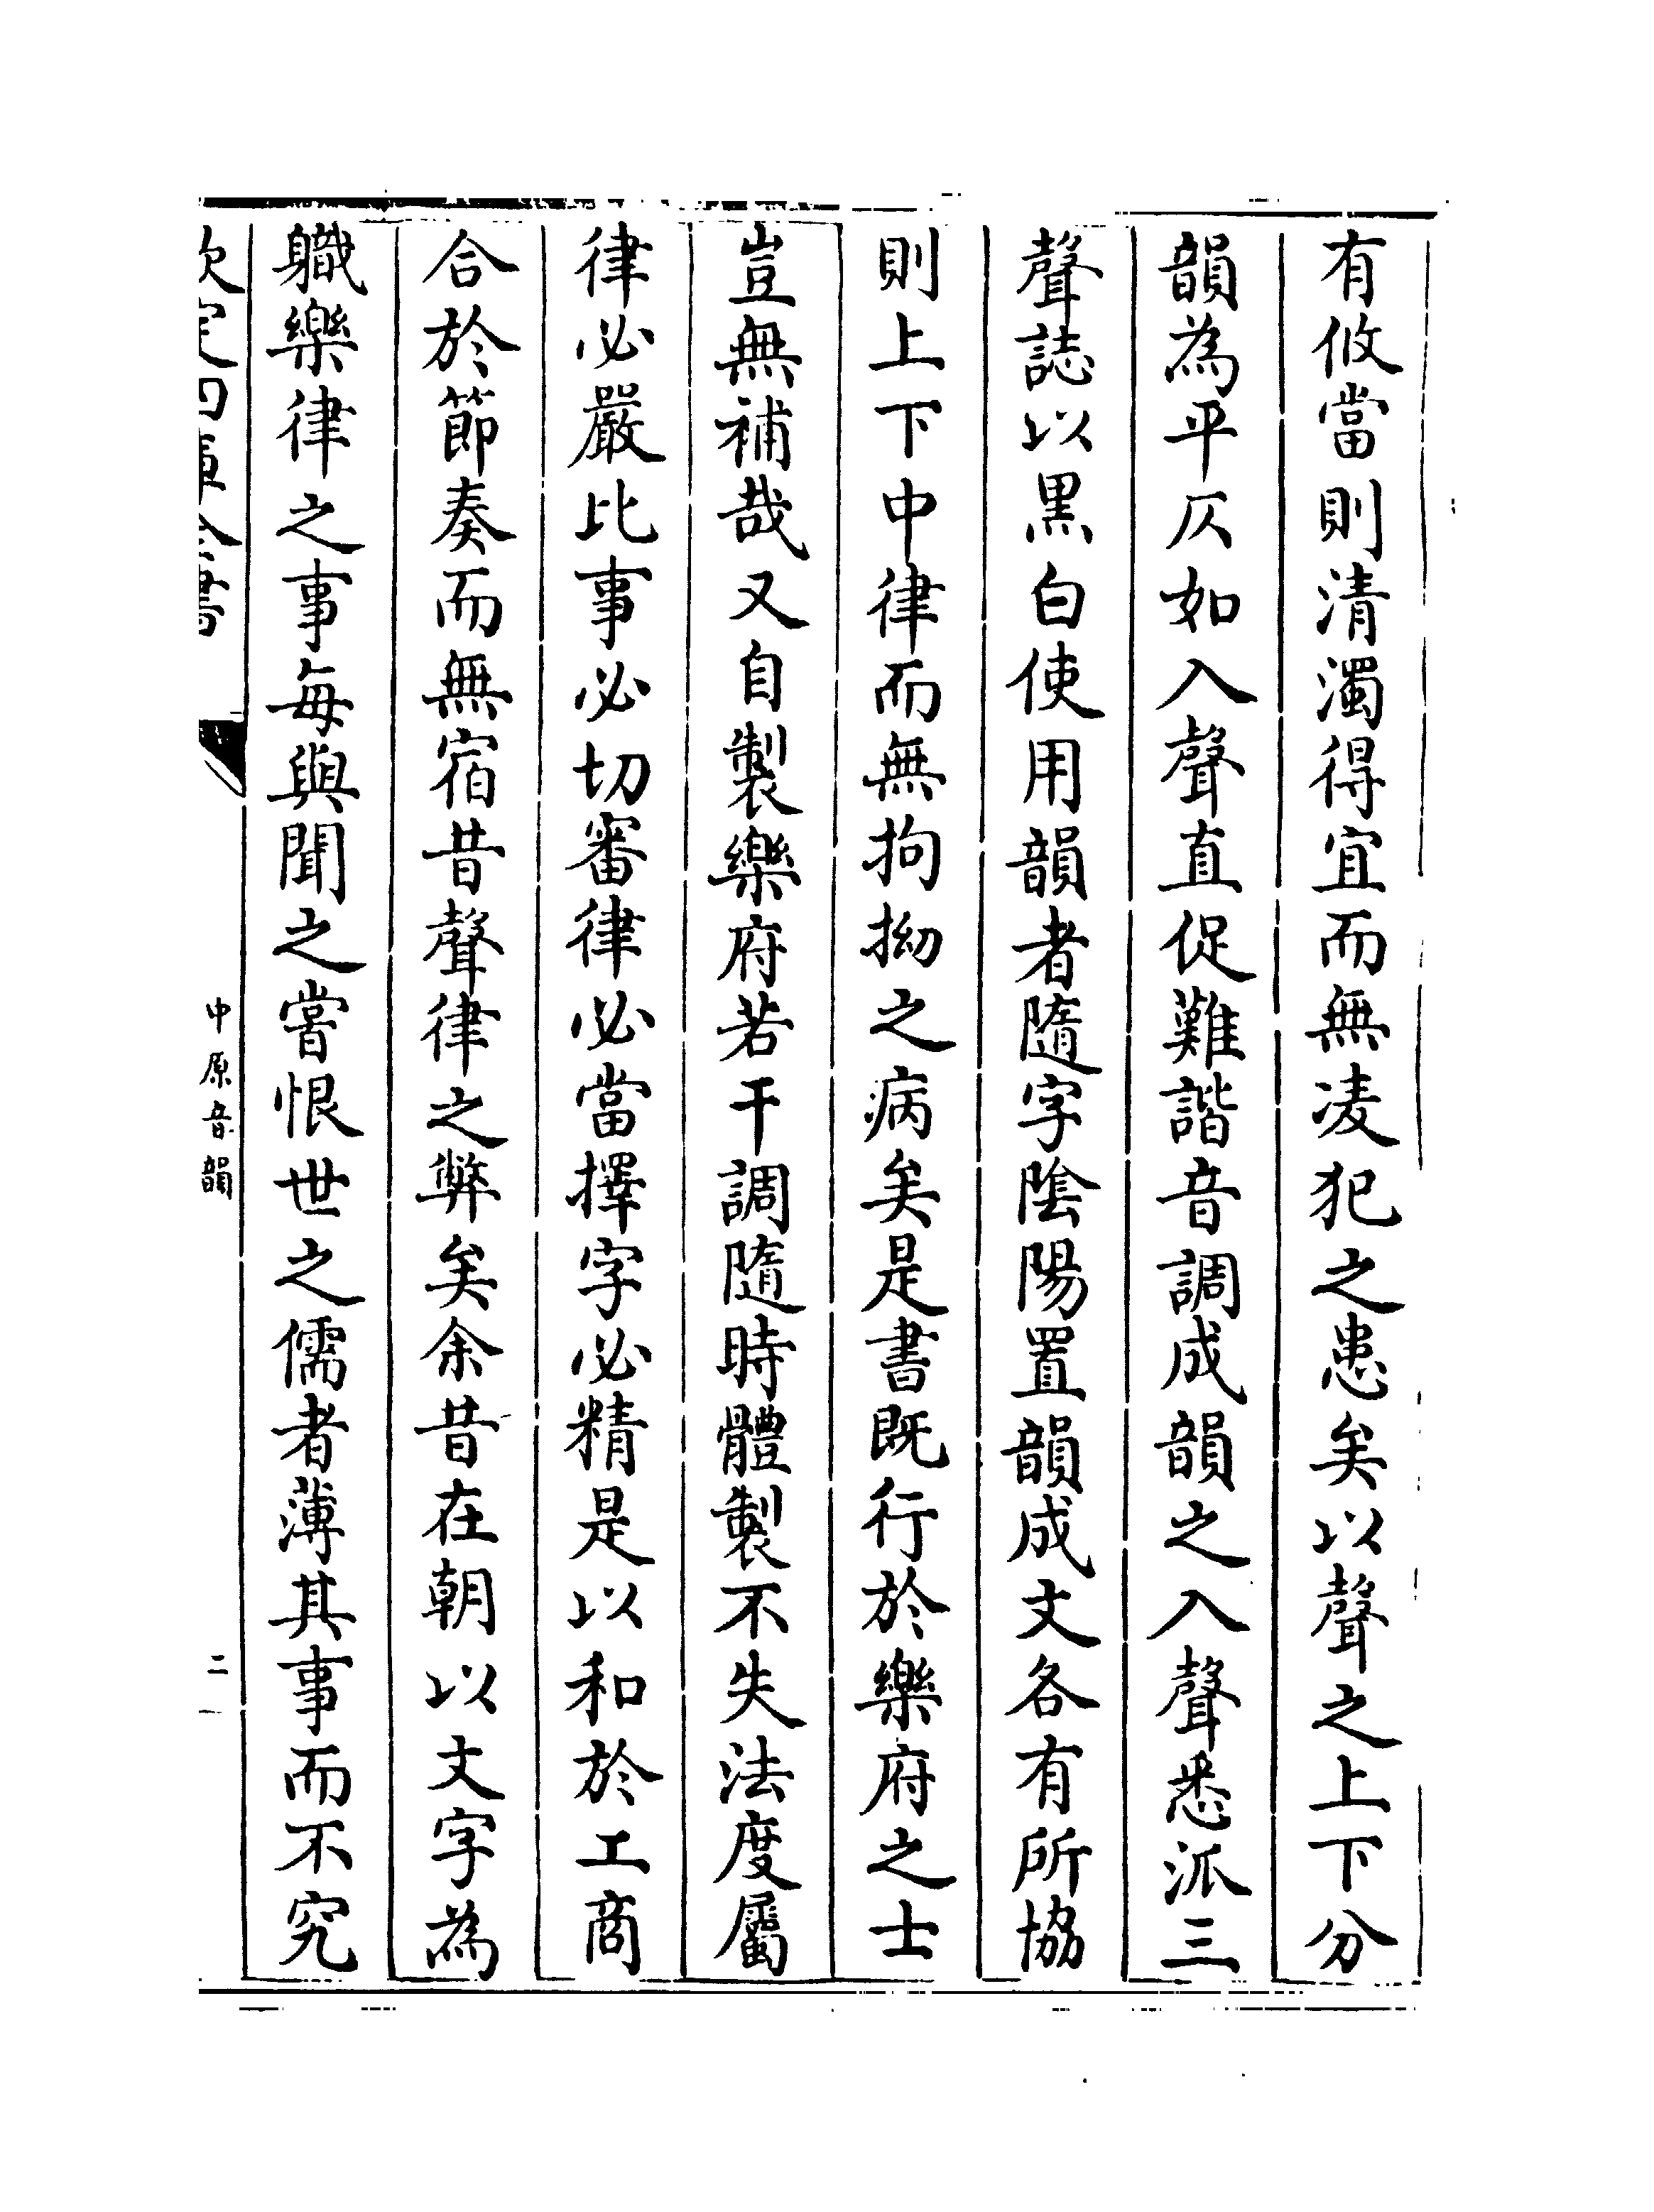 有攸當則清濁得宜而無凌犯之患矣以聲之上下分
韻為平仄如入聲直促難諧音調成韻之入聲悉派三
聲誌以黒白使用韻者隨字隂陽置韻成文各有所協
則上下中律而無拘拗之病矣是書既行於樂府之士
豈無補哉又自製樂府若干調隨時體製不失法度屬
律必嚴比事必切審律必當擇字必精是以和於工商
合於節奏而無宿昔聲律之弊矣余昔在朝以文字為
軄樂律之事每與聞之嘗恨世之儒者薄其事而不究
欽定四庫全書
中原音韻
二